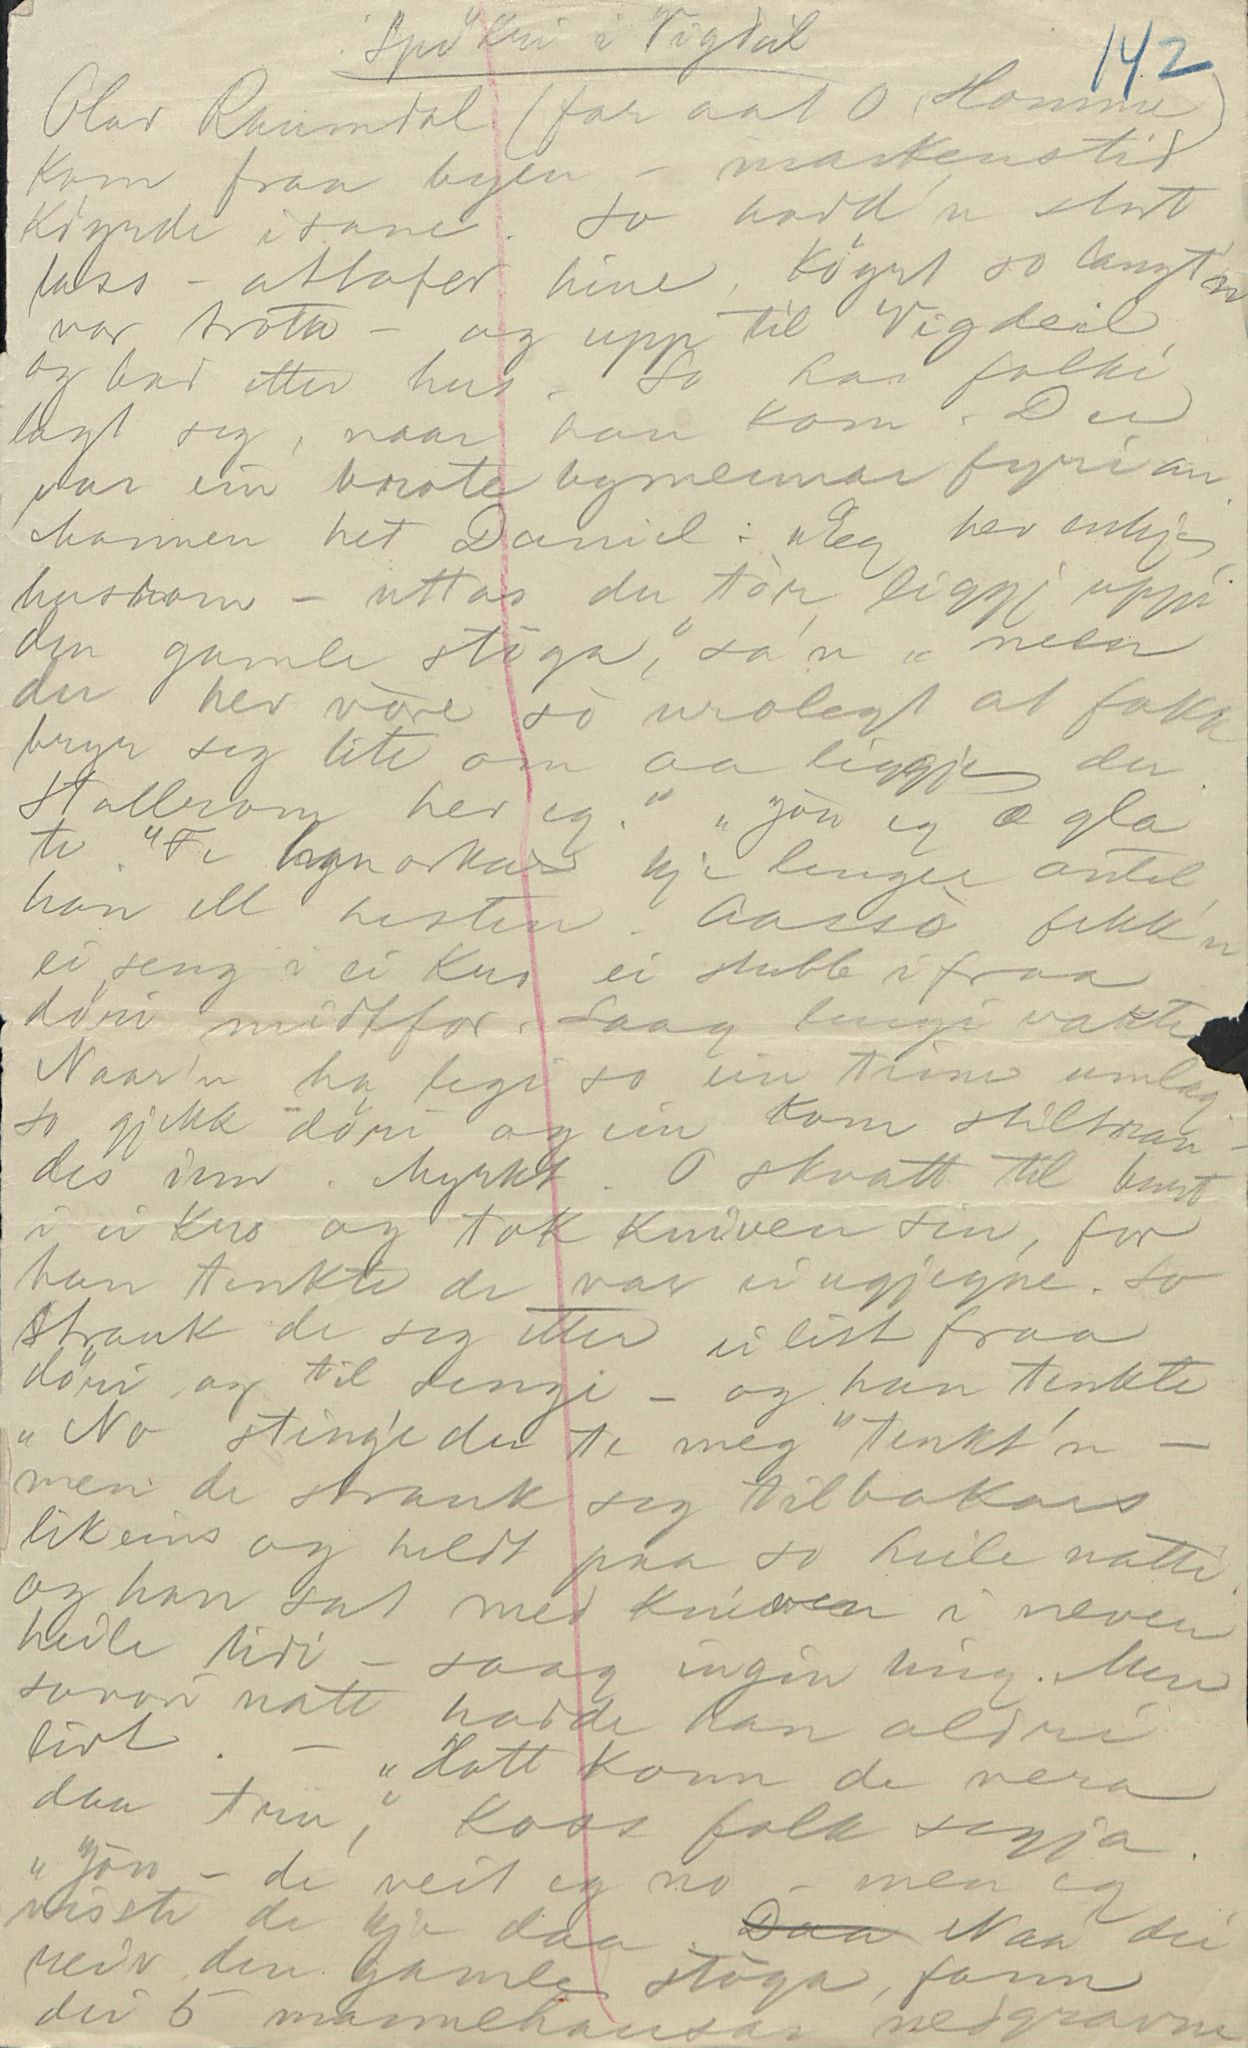 Spökin i Vigdeil
142
Olav Raumdal (far aat O Homme)
kom fraa byen - markenstid
kdyrde isane. So hadd'n stort
lass - attafer hine, kögrt so langt'n
var trøtte - og upp til Vigdeil
og bad etter hus. So har folki
lagt seg, naar han kom. Der
var ein brote bymennar fyri an
Mannen het Daniel: "Eg hev inkje
husrom - uttas du tör liggj uppi
den gamle stöga," sa'n "men
der hev vöre sò urolegt at fakk
bryr seg lite om aa liggje der
Stallrom hev eg." "Jöu eg æ gla
te." Fe orkar kje lenger antel
han ell hesten. Aassò fekk'n
ei seng i ei kro ei stubb ifraa
döri midtfor. Laag lengi vakti
Naar'n ha legi so ein time umlag
so gjekk döri og ein kom stiltran-
des inn. Myrkt. O skvatt til burt
i ei kro og tok kniven sin, for
han tenkte de var ein ugjegne. So
strauk de seg etter ei list fraa
döri og til sengi - og han tenkte
"No stingje der te meg" tenkt'n -
men de strauk seg tilbakars
likeins og heldt paa so heile natti
og han sat med kniven i neven
heile tidi - saag ingin ting. Men
sovori natt hadde han aldri
livt. - "Hott konn de vera
daa tru," Koss folk segja.
"Jöu - de veit eg no - men eg
visste de kje daa. Daa Naa dei
reiv den gamle stöga, fann
dei 5 mannehausar nedgravne